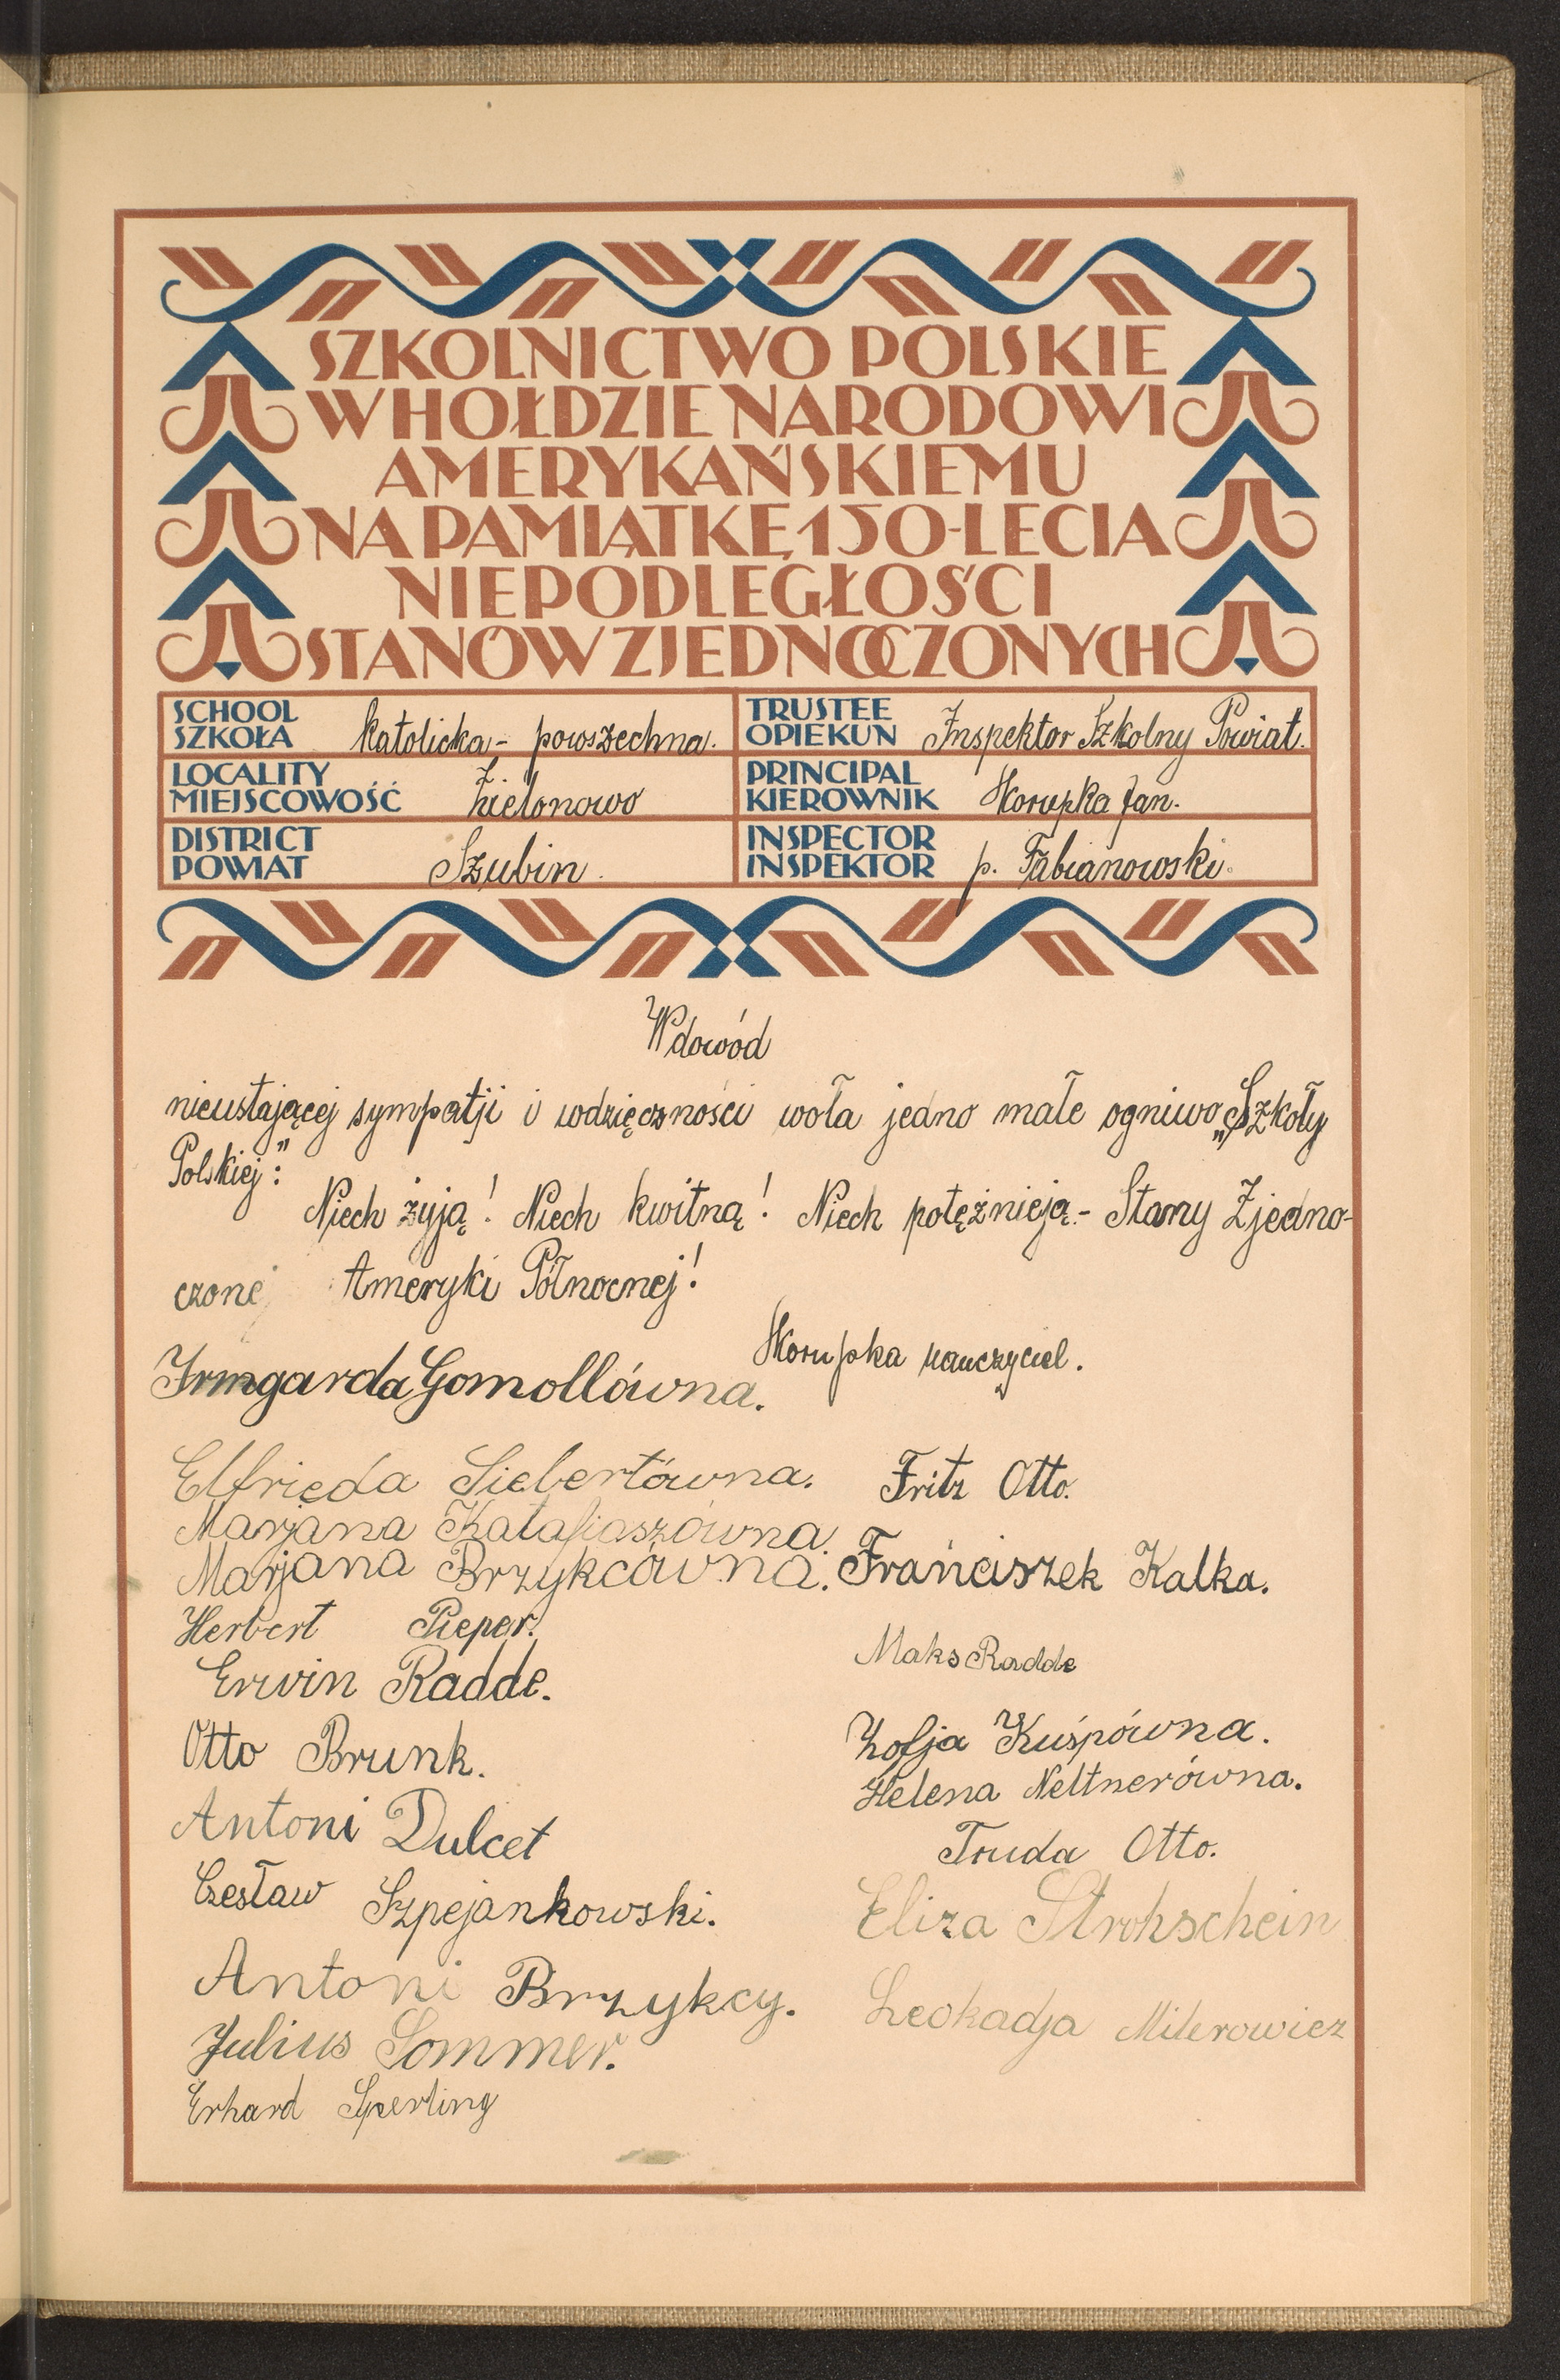 SZKOLNICTWO POLSKIE
W HOŁDZIE NARODOWI
AMERYKAŃSKIEMU
NA PAMIĄTKĘ 150-LECIA
NIEPODLEGŁOŚCI
STANÓW ZJEDNOCZONYCH
SCHOOL
SZKOŁA katolicka - powszechna.
TRUSTEE
OPIEKUN Inspektor Szkolny Powiat.
LOCALITY
MIEJSCOWOŚĆ Zielonowo
PRINCIPAL
KIEROWNIK Skorupka Jan.
DISTRICT
POWIAT Szubin.
INSPECTOR
INSPEKTOR p. Fabianowski.
W dowód
nieustającej sympatji i wdzięczności woła jedno małe ogniwo „Szkoły
Polskiej":
Niech żyją! Niech kwitną! Niech potężnieją - Stany Zjedno-
czonej Ameryki Północnej!
Skorupka nauczyciel.
Irmgarda Gomollówna.
Elfrieda Siebertówna.
Marjana Katafiaszówna.
Marjana Brzykcówna.
Herbert Pieper.
Erwin Radde.
Otto Brunk.
Antoni Dulcet
Czesław Szpejankowski.
Antoni Brzykcy.
Julius Sommer.
Erhard Sperling
Fritz Otto.
Frańciszek Kalka.
Maks Radde
Zofja Kuśpówna.
Helena Neltnerówna.
Truda Otto.
Eliza Strohschein
Leokadja Milerowicz